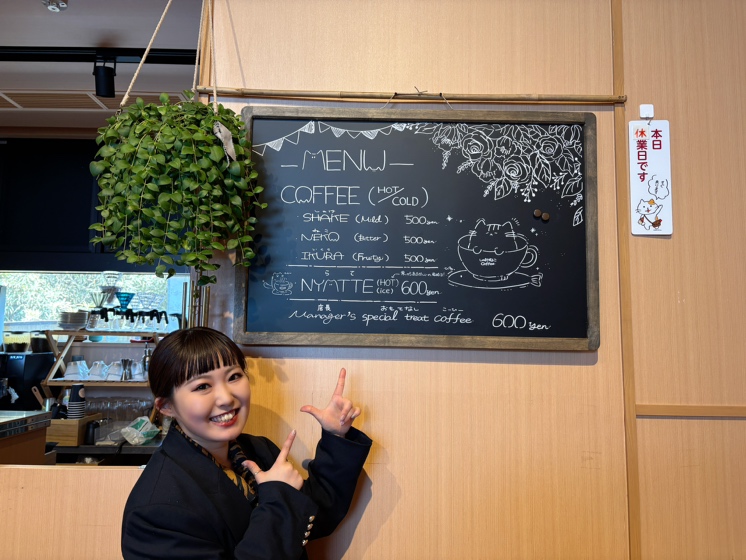 MENU
COFFEE (HOT/COLD)
SHAKE (Mild) 500yen
NEKO (Bitter) 500yen
IKURA (Fruity) 500yen
らて
NYATTE (HOT/ice) 600yen
店長 おもてなし こーひー
Manager's special treat coffee 600yen
Coffee
本日
休業日です